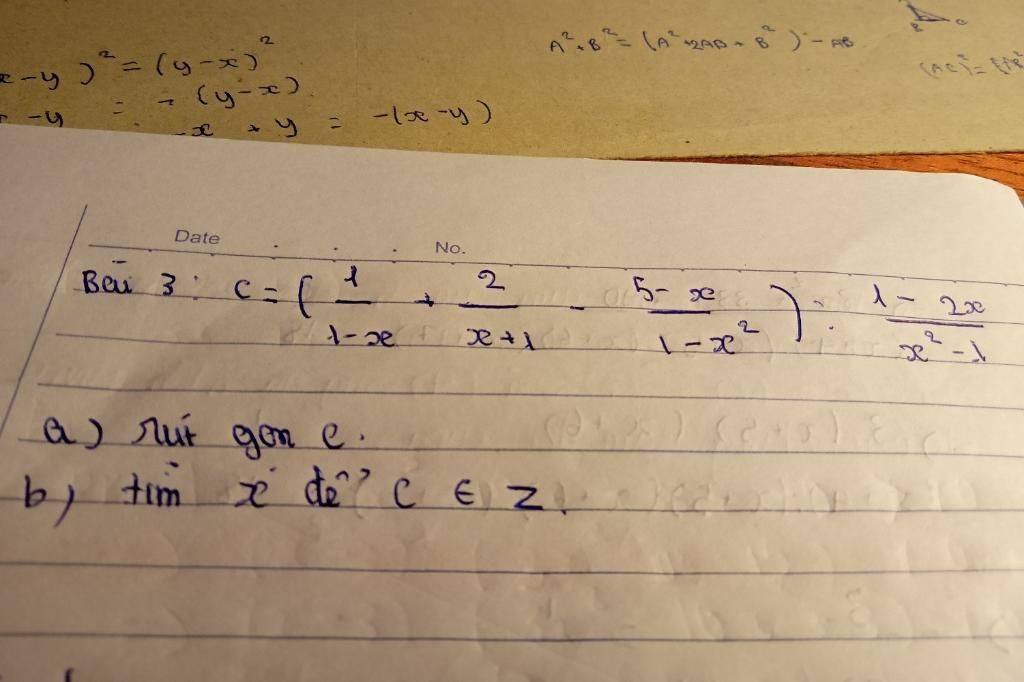 x-y)² = (y-x)²
-y = -(y-x)
-x + y = -(x-y)
A² + B² = (A² + 2AB + B²) - AB
B C
(AC)² =
Date . . . No.
Bài 3 : C = ( 1/1-x + 2/x+1 - 5-x/1-x² ) : 1-2x/x²-1
a) rút gọn C.
b) tìm x để C ∈ Z.